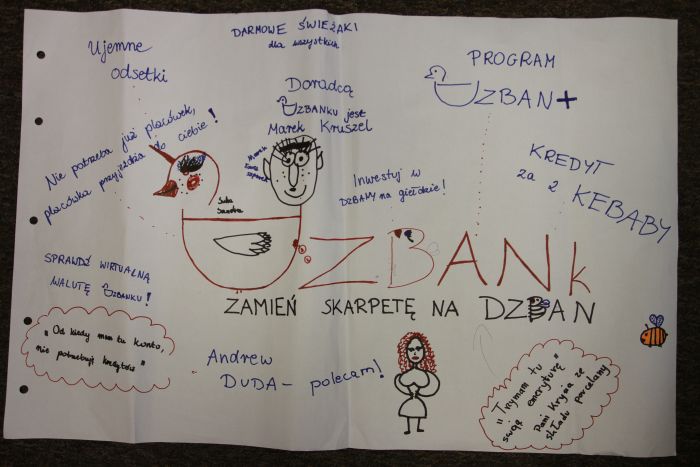 Ujemne
odsetki
DARMOWE ŚWIEŻAKI
dla wszystkich
PROGRAM
UZBAN+
Doradcą
UZBANKU jest
Marek Kruszel
Nie potrzeba już placówek,
placówka przyjeżdża do ciebie!
Inwestuj w
DZBANY na giełdzie!
KREDYT
za 2
KEBABY
UZBANk
ZAMIEŃ SKARPETĘ NA DZBAN
SPRAWDŹ WIRTUALNĄ
WALUTĘ UZBANKU!
"Od kiedy mam tu konto,
nie potrzebuję kredytów"
Andrew
DUDA - polecam!
"Trzymam tu
swoją emeryturę"
Pani Krysia ze
składu porcelany